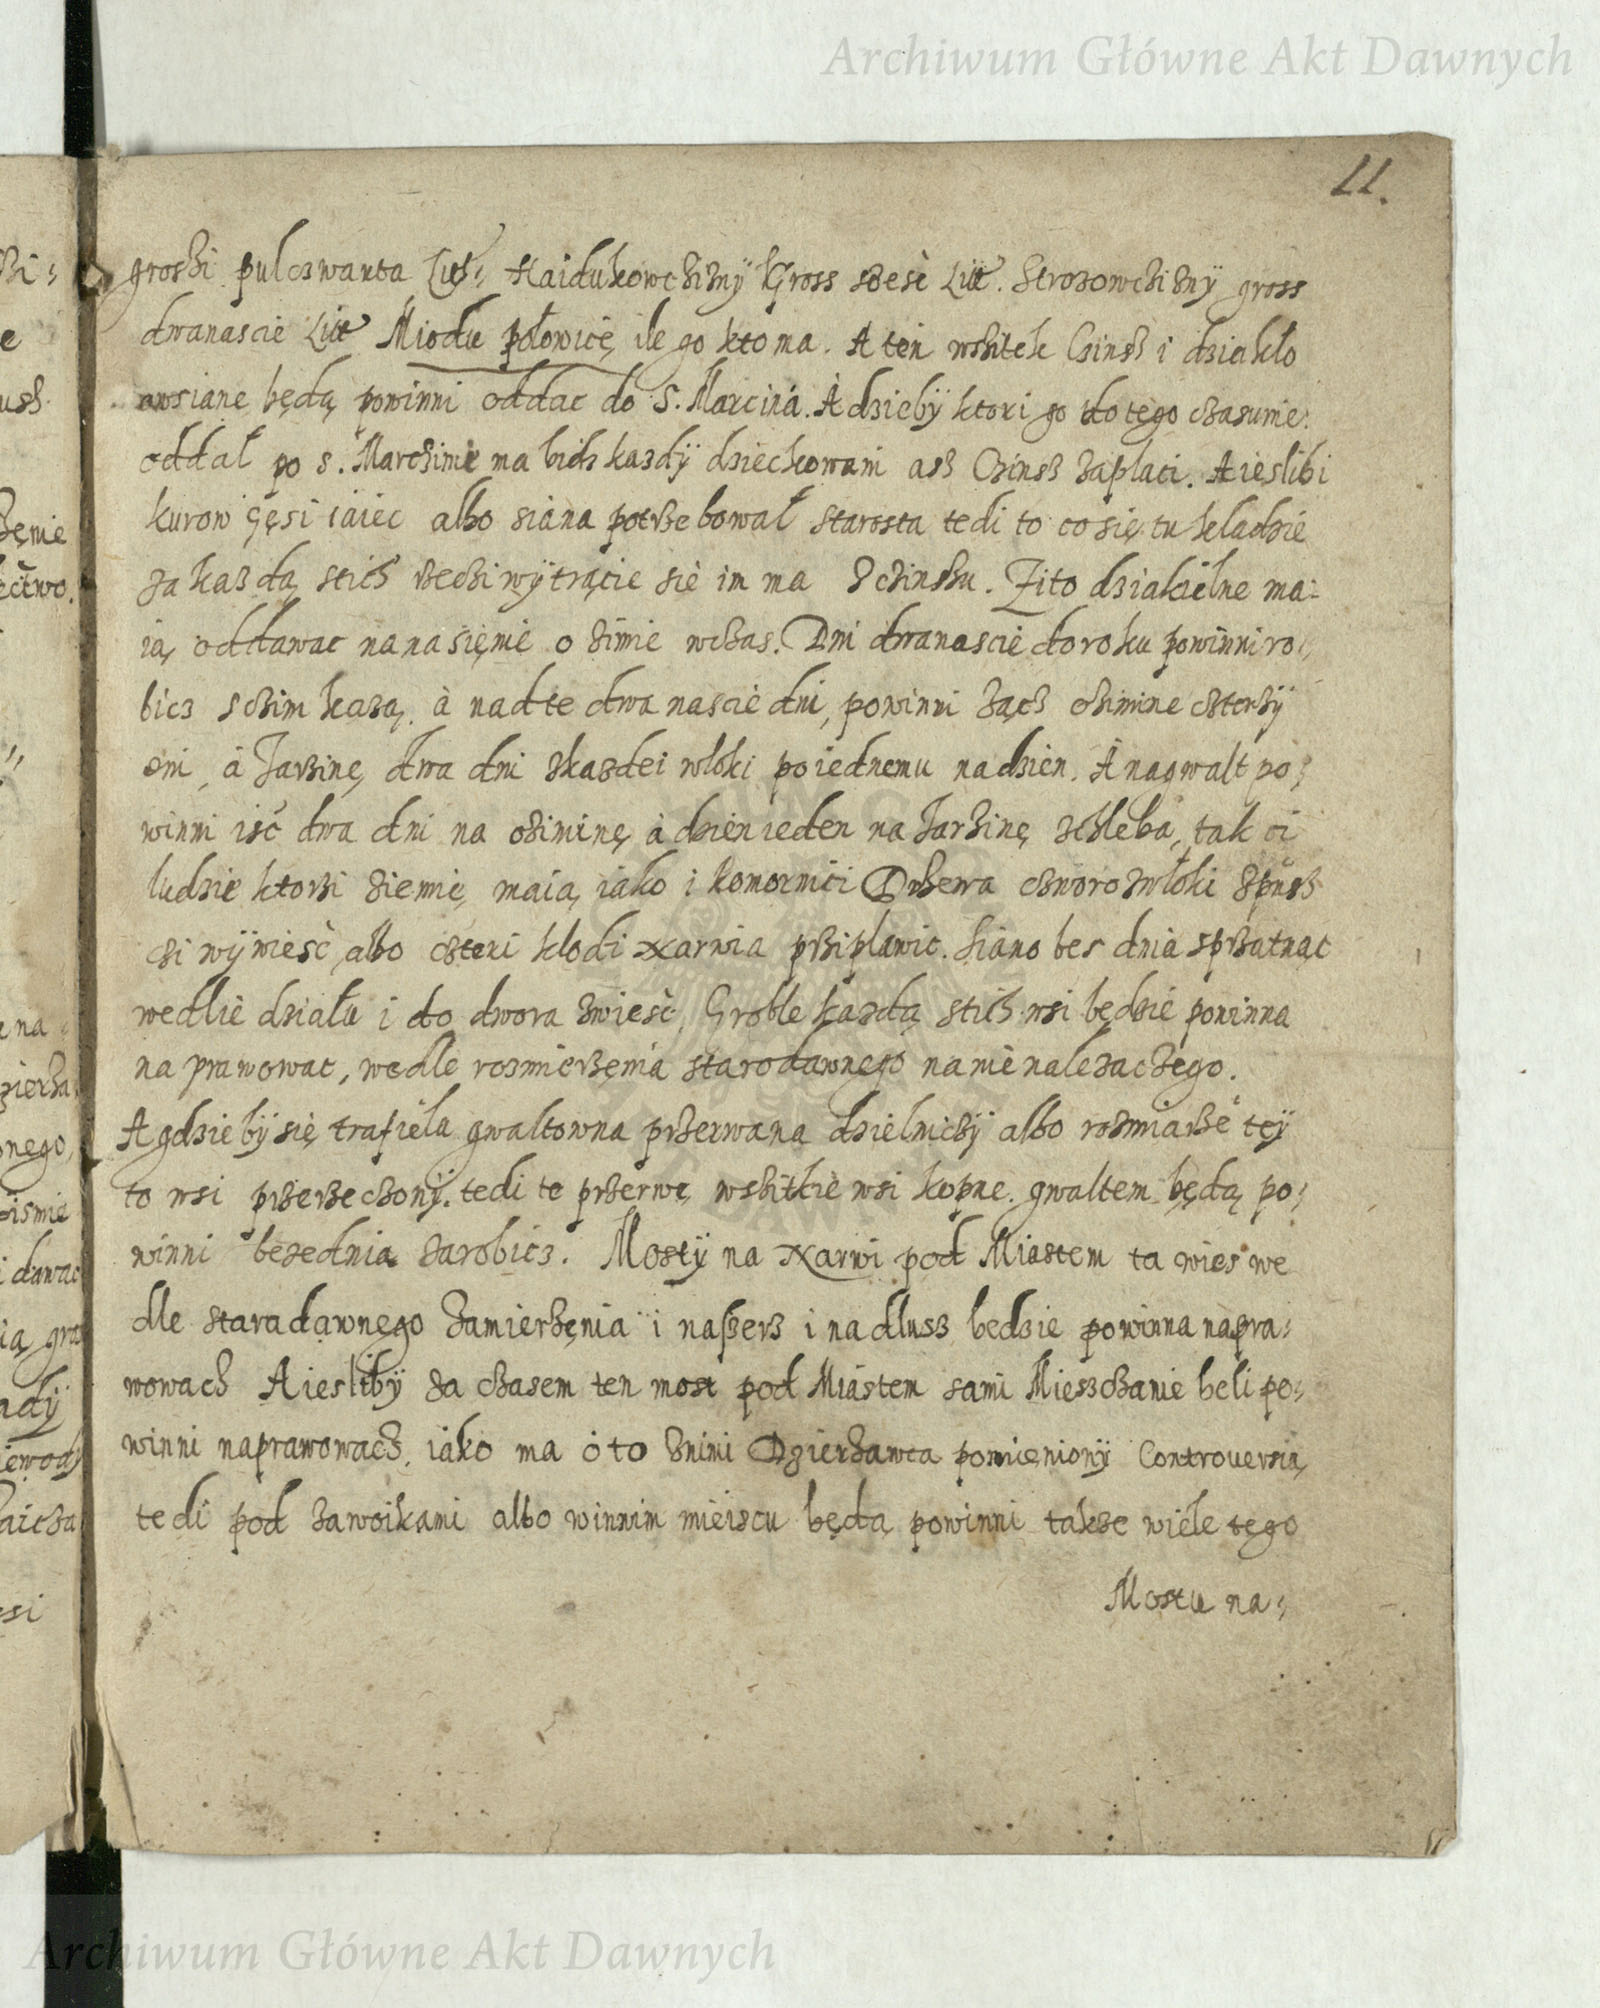 Archiwum Główne Akt Dawnych
11.
groszi pulczwarta Lit, Haidukowczizny Gross szesc Lit. Strozowczizny gross
dwanascie Lit Miodu połowicę ile go kto ma. A ten wszitek Czinsz i dziakło
owsiane będą powinni oddac do S. Marcina. A dzieby ktori go do tego czasu nie
oddał po s. Marczinie ma bidz kazdÿ dzieckowani asz Czinsz zaplaci. A ieslibi
kurow gęsi iaiec albo siana potrzebował starosta tedi to co się tu kladzie
za kazdą stich rzeczi wÿtrącie się im ma z czinszu. Zito dziakielne ma-
ią oddawac na nasięnie o zimie wczas. Dni dwanascie do roku powinni ro-
bicz sczim kazą. à nad te dwanascie dni, powinni żącz oziminę czterzÿ
dni, à Jarzinę dwa dni zkazdei wloki po iednemu na dzien. A na gwalt po-
winni isć dwa dni na oziminę à dzien ieden na Jarzinę zchleba, tak ci
ludzie ktorzi ziemię maią iako i komornici Drzewa czworo zwłoki zpusz
czi wÿwiesć albo czteri klodi Narwia prziplawic. Siano bes dnia sprzatnąc
wedlie działu i do dwora zwiesć, Groble kazdą stich wsi będzie powinna
naprawowac, wedle rozmierzenia starodawnego na nie nalezaczego.
A gdziebÿ się trafiela gwaltowna przerwana dzielniczÿ albo rozmiarze teÿ
to wsi przerzeczonÿ. tedi te przerwę wszitkie wsi kopne. gwaltem będą po-
winni beze dnia zarobicz. Mostÿ na Narwi pod Miastem ta wies we
dle staradawnego zamierzęnia i naszerz i nadlusz bedzie powinna napra-
wowacz A iesliby za czasem ten most pod Miastem sami Miesczanie beli po-
winni naprawowacz, iako ma o to znimi Dzierzawca pomienionÿ Controuersią
tedi pod zawoikami albo winnim mieiscu będą powinni takze wiele tego
Mostu na-
Archiwum Główne Akt Dawnych